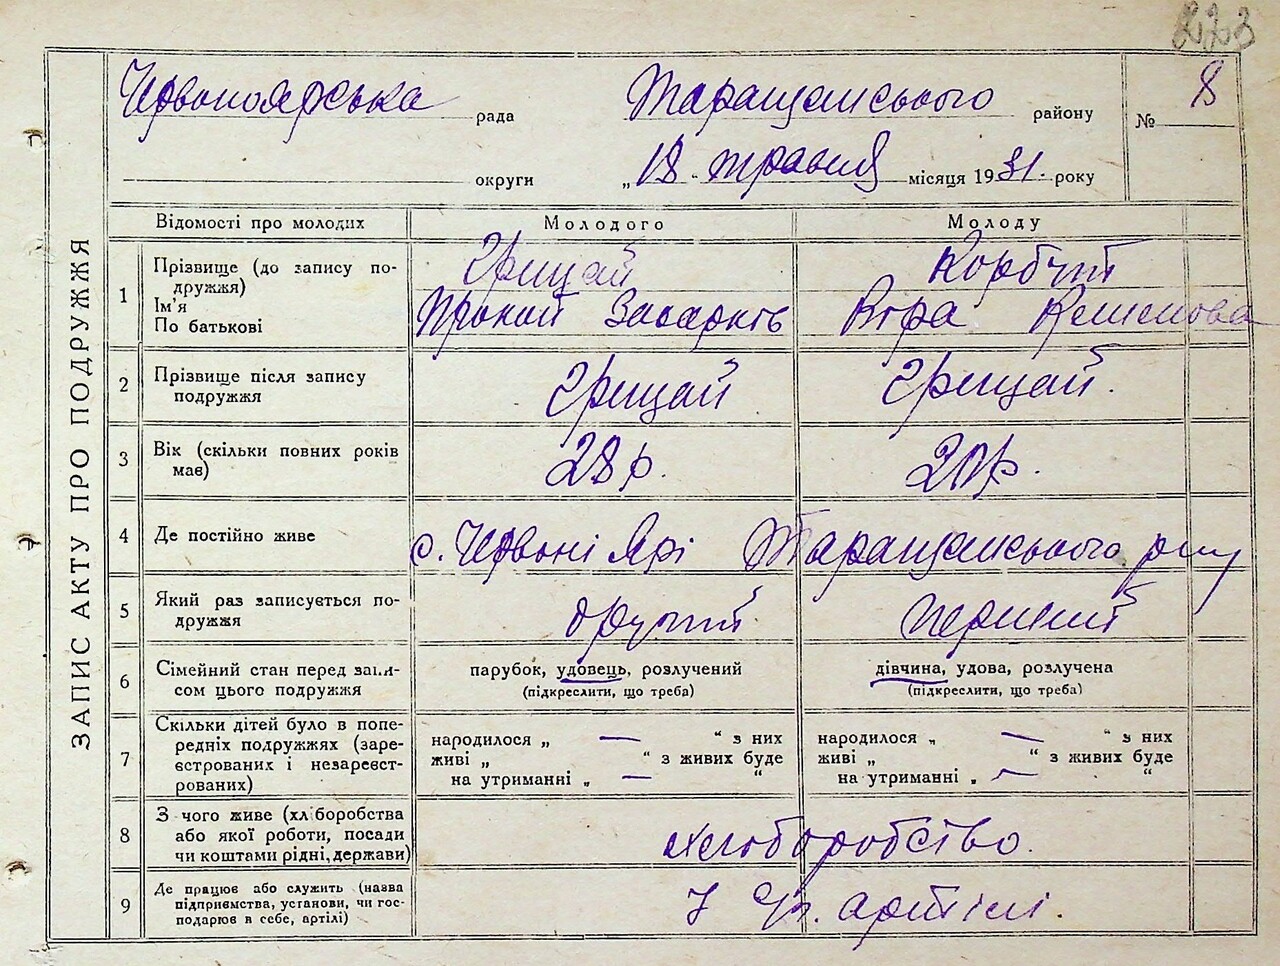 223
Червоноярська рада Таращанського району № 8
округи „18" травня місяця 1931. року
ЗАПИС АКТУ ПРО ПОДРУЖЖЯ
Відомості про молодих Молодого Молоду
1 Прізвище (до запису по-
дружжя)
Ім'я
По батькові
Грицай
Прокоп Захарків
Корбут
Віра Клименова
2 Прізвище після запису
подружжя
Грицай Грицай.
3 Вік (скільки повних років
має)
28 р. 20 р.
4 Де постійно живе
с. Червоні Ярі Таращанського р-ну
5 Який раз записується по-
дружжя
другий перший
6 Сімейний стан перед запи-
сом цього подружжя
парубок, удовець, розлучений
(підкреслити, що треба)
дівчина, удова, розлучена
(підкреслити, що треба)
7 Скільки дітей було в попе-
редніх подружжях (заре-
єстрованих і незареєст-
рованих)
народилося „ — " з них
живі „ " з живих буде
на утриманні „ — "
народилося „ — " з них
живі „ " з живих буде
на утриманні „ — "
8 З чого живе (хліборобства
або якої роботи, посади
чи коштами рідні, держави)
хліборобство.
9 Де працює або служить (назва
підприємства, установи, чи гос-
подарює в себе, артілі)
У артілі.